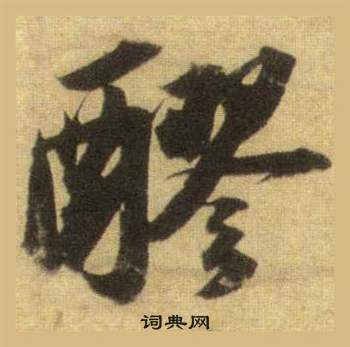 醪
词典网